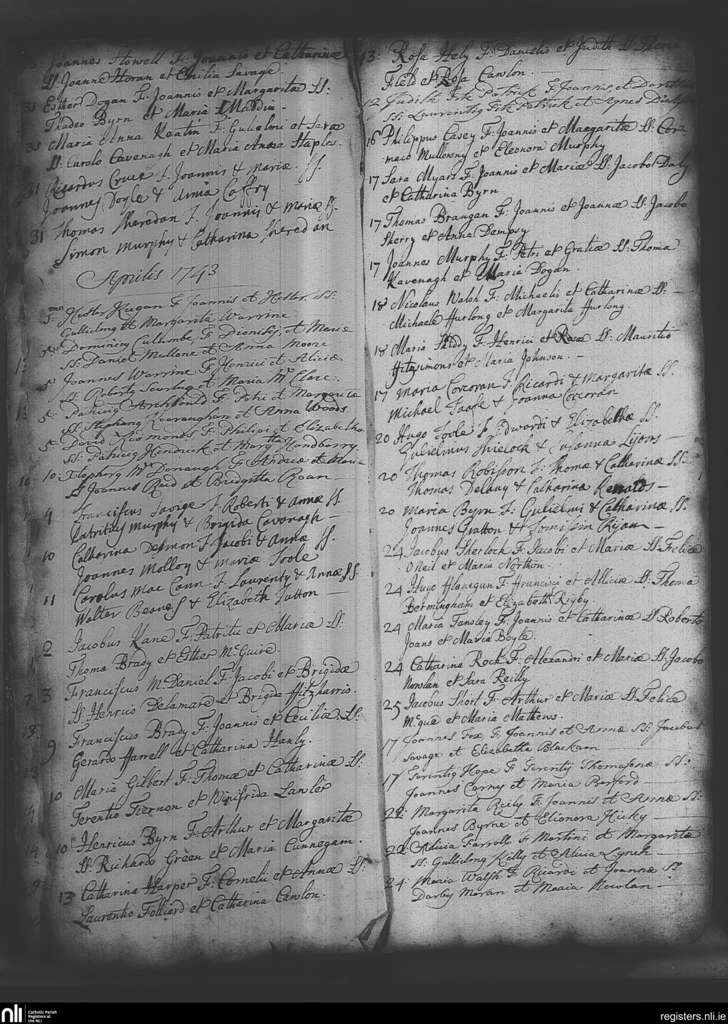 Joannes Howell F. Joannis et Catharinæ
SS. Joanne Horan et Emilia Savage.
31 Esther Dogan F. Joannis et Margaritæ SS.
Thadeo Byrn et Maria Maddin
31 Maria Anna Keatin F. Gulielmi et Saræ
SS. Carolo Cavenagh et Maria Anna Staples.
31 Ricardus Cruce F. Joannis & Mariæ SS.
Joannes Doyle & Anna Caffry
31 Thomas Sheredan F. Joannis & Mariæ SS.
Simon Murphy & Catharina Sheredan
Aprilis 1743
5 Hester Keegan F Joannis et Hester SS.
et Margarita Warrine
Dominicus F. Dionisy et Maria
SS. Daniel Mullone et Anna Moore
5 Joannes Warrine F. Henrici et Alicia
SS. Robertg et Maria Mc Clare.
5 Archbold F. Petri et Margarita
SS. Stephang Kavanaghan et Anna Woods
5 David F. Philipi et Elizabetha
SS. Patricig Hendrick et Martha
10 Mc Donaugh F. Andreæ et Maria
SS. Joannes Reed et Bridgitta Roan
9 Franciscus Savage F. Roberti & Annæ SS
Patritius Murphy & Brigida Cavenagh
10 Catharina F. Jacobi & Annæ SS.
Joannes Molloy & Mariæ Toole
11 Carolus Mac Cann F. Laurenty & Annæ SS
Walter & Elizabeth Tutton
2 Jacobus Kane F. Patritii et Mariæ SS.
Thoma Brady et Esther McGuire
3 Franciscus McDaniel F. Jacobi et Brigidæ
SS. Henrico Delamard et Brigida Fitzharris.
9 Franciscus Brady F. Joannis et Ceciliæ SS.
Gerardo Harrell et Catharina Hanly.
10 Maria Gilbert F. Thomæ et Catharinæ SS.
Terentio Tiernon et Winifrida Lawler
10 Henricus Byrn F. Arthur et Margaritæ
SS. Richardo Green et Maria Cunnegam.
13 Catharina Harper F. Cornelii et Annæ SS.
Laurentio Folliard et Catharina Carolon.
13 Rosa Hely F. Danielis et Judith SS.
Field et Rosa Carolon.
12 Judith Fitz Patrick F. Joannis et
SS. Laurentig Fitz Patrick et Agnes
16 Philippus Casey F. Joannis et Margaritæ SS. Cor
mack Mullowny et Eleonora Murphy
17 Sara Myars F. Joannis et Mariæ SS. Jacobo Darly
et Catharina Byrn
17 Thomas Brangan F. Joannis et Joannæ SS. Jacobo
Sherry et Anna Dempsy
17 Joannes Murphy F. Petri et Gratiæ SS. Thoma
Kavenagh et Maria Dogan.
18 Nicolaus Walsh F. Michaelis et Catharinæ SS.
Michaele Hurlong et Margarita Hurlong
18 Maria F. Henrici et Rosæ SS. Mauritio
Fitzsimons et Maria Johnson.
17 Maria Corcoran F. Ricardi & Margaritæ SS.
Michael Toole & Joanna Corcoran
20 Hugo Toole F. Edwardi & Elizabethæ SS.
Gulielmus & Susanna
20 Thomas Robisson F. Thomæ & Catharinæ SS.
Thomas Delany & Catharina
20 Maria Byrn F. Gulielmi & Catharinæ SS.
Joannes Gratton & Ryan
24 Jacobus Sherlock F. Jacobi et Mariæ SS. Felice
O Neil et Maria Northon.
24 Hugo Flanegan F. Francisci et Alliciæ SS. Thoma
Bermingham et Elizabeth Rigby.
24 Maria Tansley F. Joannis et Catharinæ SS. Roberto
et Maria Boyle.
24 Catharina Rock F. Alexandri et Mariæ SS. Jacobo
Nowlan et Sara Reilly
25 Jacobus Short F. Arthur et Mariæ SS. Felice
et Maria Mathews.
17 Joannes Fox F. Joannis et Annæ SS. Jacobus
Savage et Elizabetha Blackam
17 Terentig Hope F. Terenty SS.
Joannes Carny et Maria
22 Margarita Reily F. Joannis et Annæ SS.
Joannes Byrne et Elionora Hicky
22 Alicia Farroll F. Martini et Margaritæ
SS. Kelly et Alicia Lynch
24 Maria Walsh F. Ricardi et Joannæ SS.
Darby Moran et Maria Nowlan
nli
Catholic Parish
Registers at
the NLI
registers.nli.ie